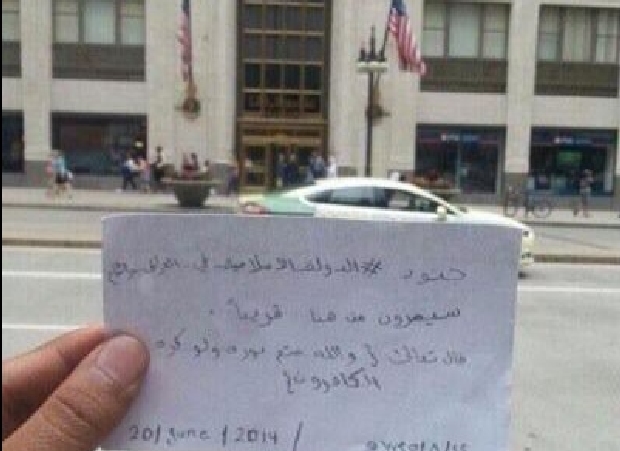 جنود #الدولة_الاسلامية_في_العراق_والشام
سيمرون من هنا قريباً .
قال تعالى { والله متم نوره ولو كره
الكافرون }
20/June/2014 /